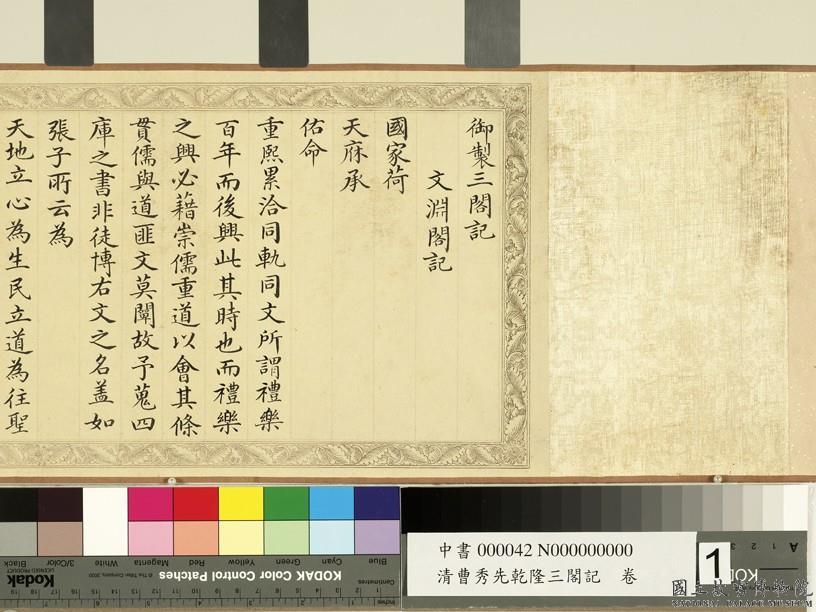 御製三閣記
文淵閣記
國家荷
天庥承
佑命
重熙累洽同軌同文所謂禮樂
百年而後興此其時也而禮樂
之興必藉崇儒重道以會其條
貫儒與道匪文莫闡故予蒐四
庫之書非徒博右文之名盖如
張子所云為
天地立心為生民立道為往聖
Blue
Cyan
Green
Yellow
Red
Magenta
White
3/Color
Black
KODAK Color Control Patches
Kodak
LICENSED PRODUCT
© The Tiffen Company, 2000
Centimetres
Inches
中書 000042 N000000000
清曹秀先乾隆三閣記 卷
1
A 1 2 3
KOD
國立故宮博物院
NATIONAL PALACE MUSEUM